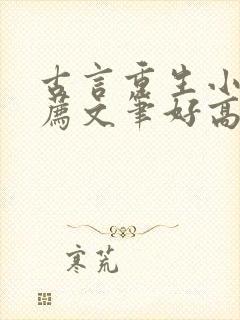 古言重生小
薦文筆好高
寒荒